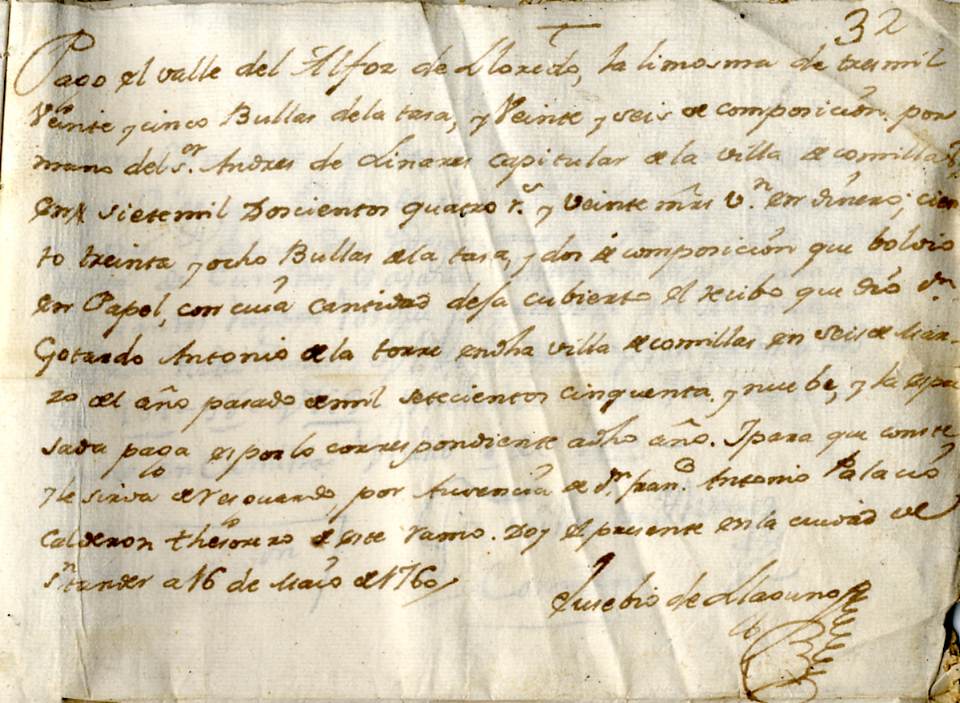 32
Pago el valle del Alfoz de Lloredo, la limosma de tres mil
Veinte y cinco Bullas dela tasa, y Veinte y seis de composición por
mano del sr. Andres de Linares capitular de la villa de comillas
en siete mil Doscientos quatro rs. y veinte mrs vn. en dinero; cien
to treinta y ocho Bullas dela tasa, y dos de composición que bolvio
en Papel, con cuia cantidad desa cubierto el recibo que dio dn
Gotardo Antonio de la torre endha villa de comillas en seis de Mar-
zo del año pasado de mil setecientos cinquenta y nuebe, y la espre
sada paga es por lo correspondiente adho año. Ipara que conste
y le sirva de resguardo, por Ausencia de dn. franco. Antonio Palacio
Calderon thesorero de este ramo. Doy el presente en la ciudad de
Sntander a 16 de Maio de 1760
Eusebio de Llaguno